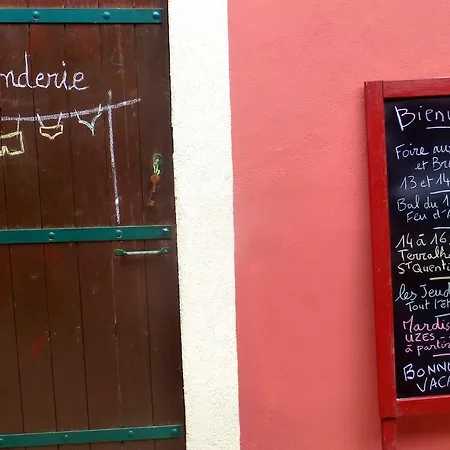 nderie
BIENV
Foire aux
et Br
13 et 14
Bal du 1
Feu d'
14 à 16
Terralha
ST Quenti
les Jeud
Tout l'ét
Mardis
UZES
à parti
BONNE
VACA